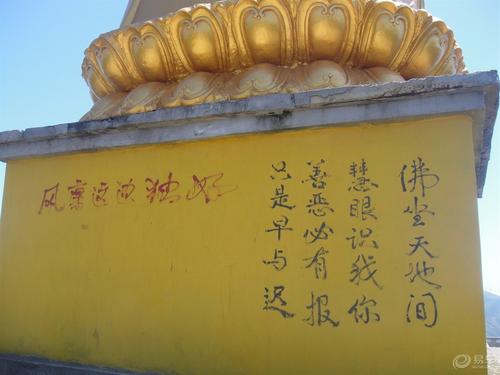 佛坐天地间
慧眼识我你
善恶必有报
只是早与迟
风景这边独好
易车